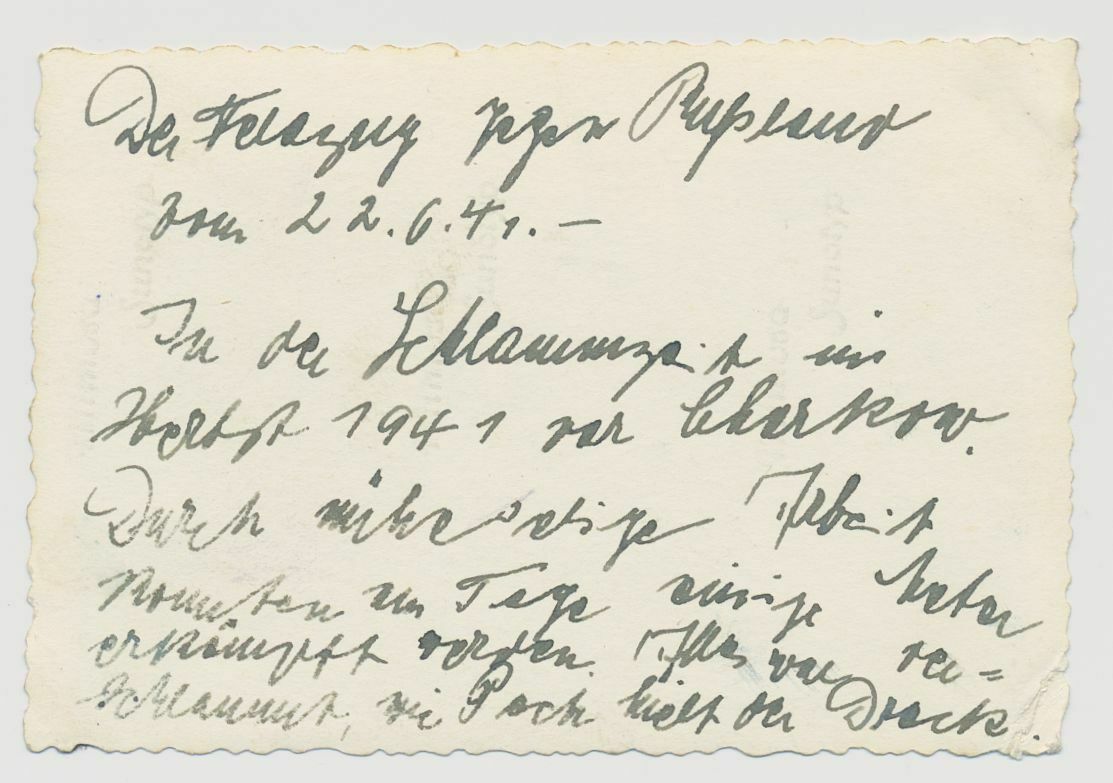 Der Feldzug gegen Rußland
vom 22.6.41. –
In der Schlammzeit im
Herbst 1941 vor Charkow.
Durch mühselige Arbeit
konnten am Tage einige Meter
erkämpft werden. Alles war ver=
schlammt, wie Pech hielt der Dreck.